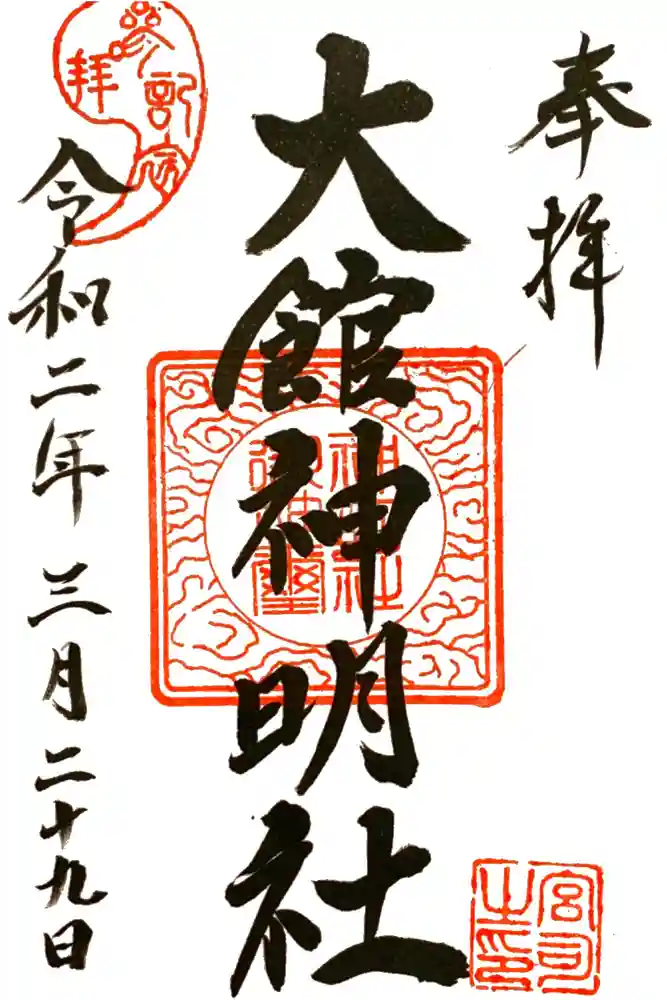 奉拝
大館神明社
令和二年三月二十九日
参拝記念
神明社御神璽
宮司之印